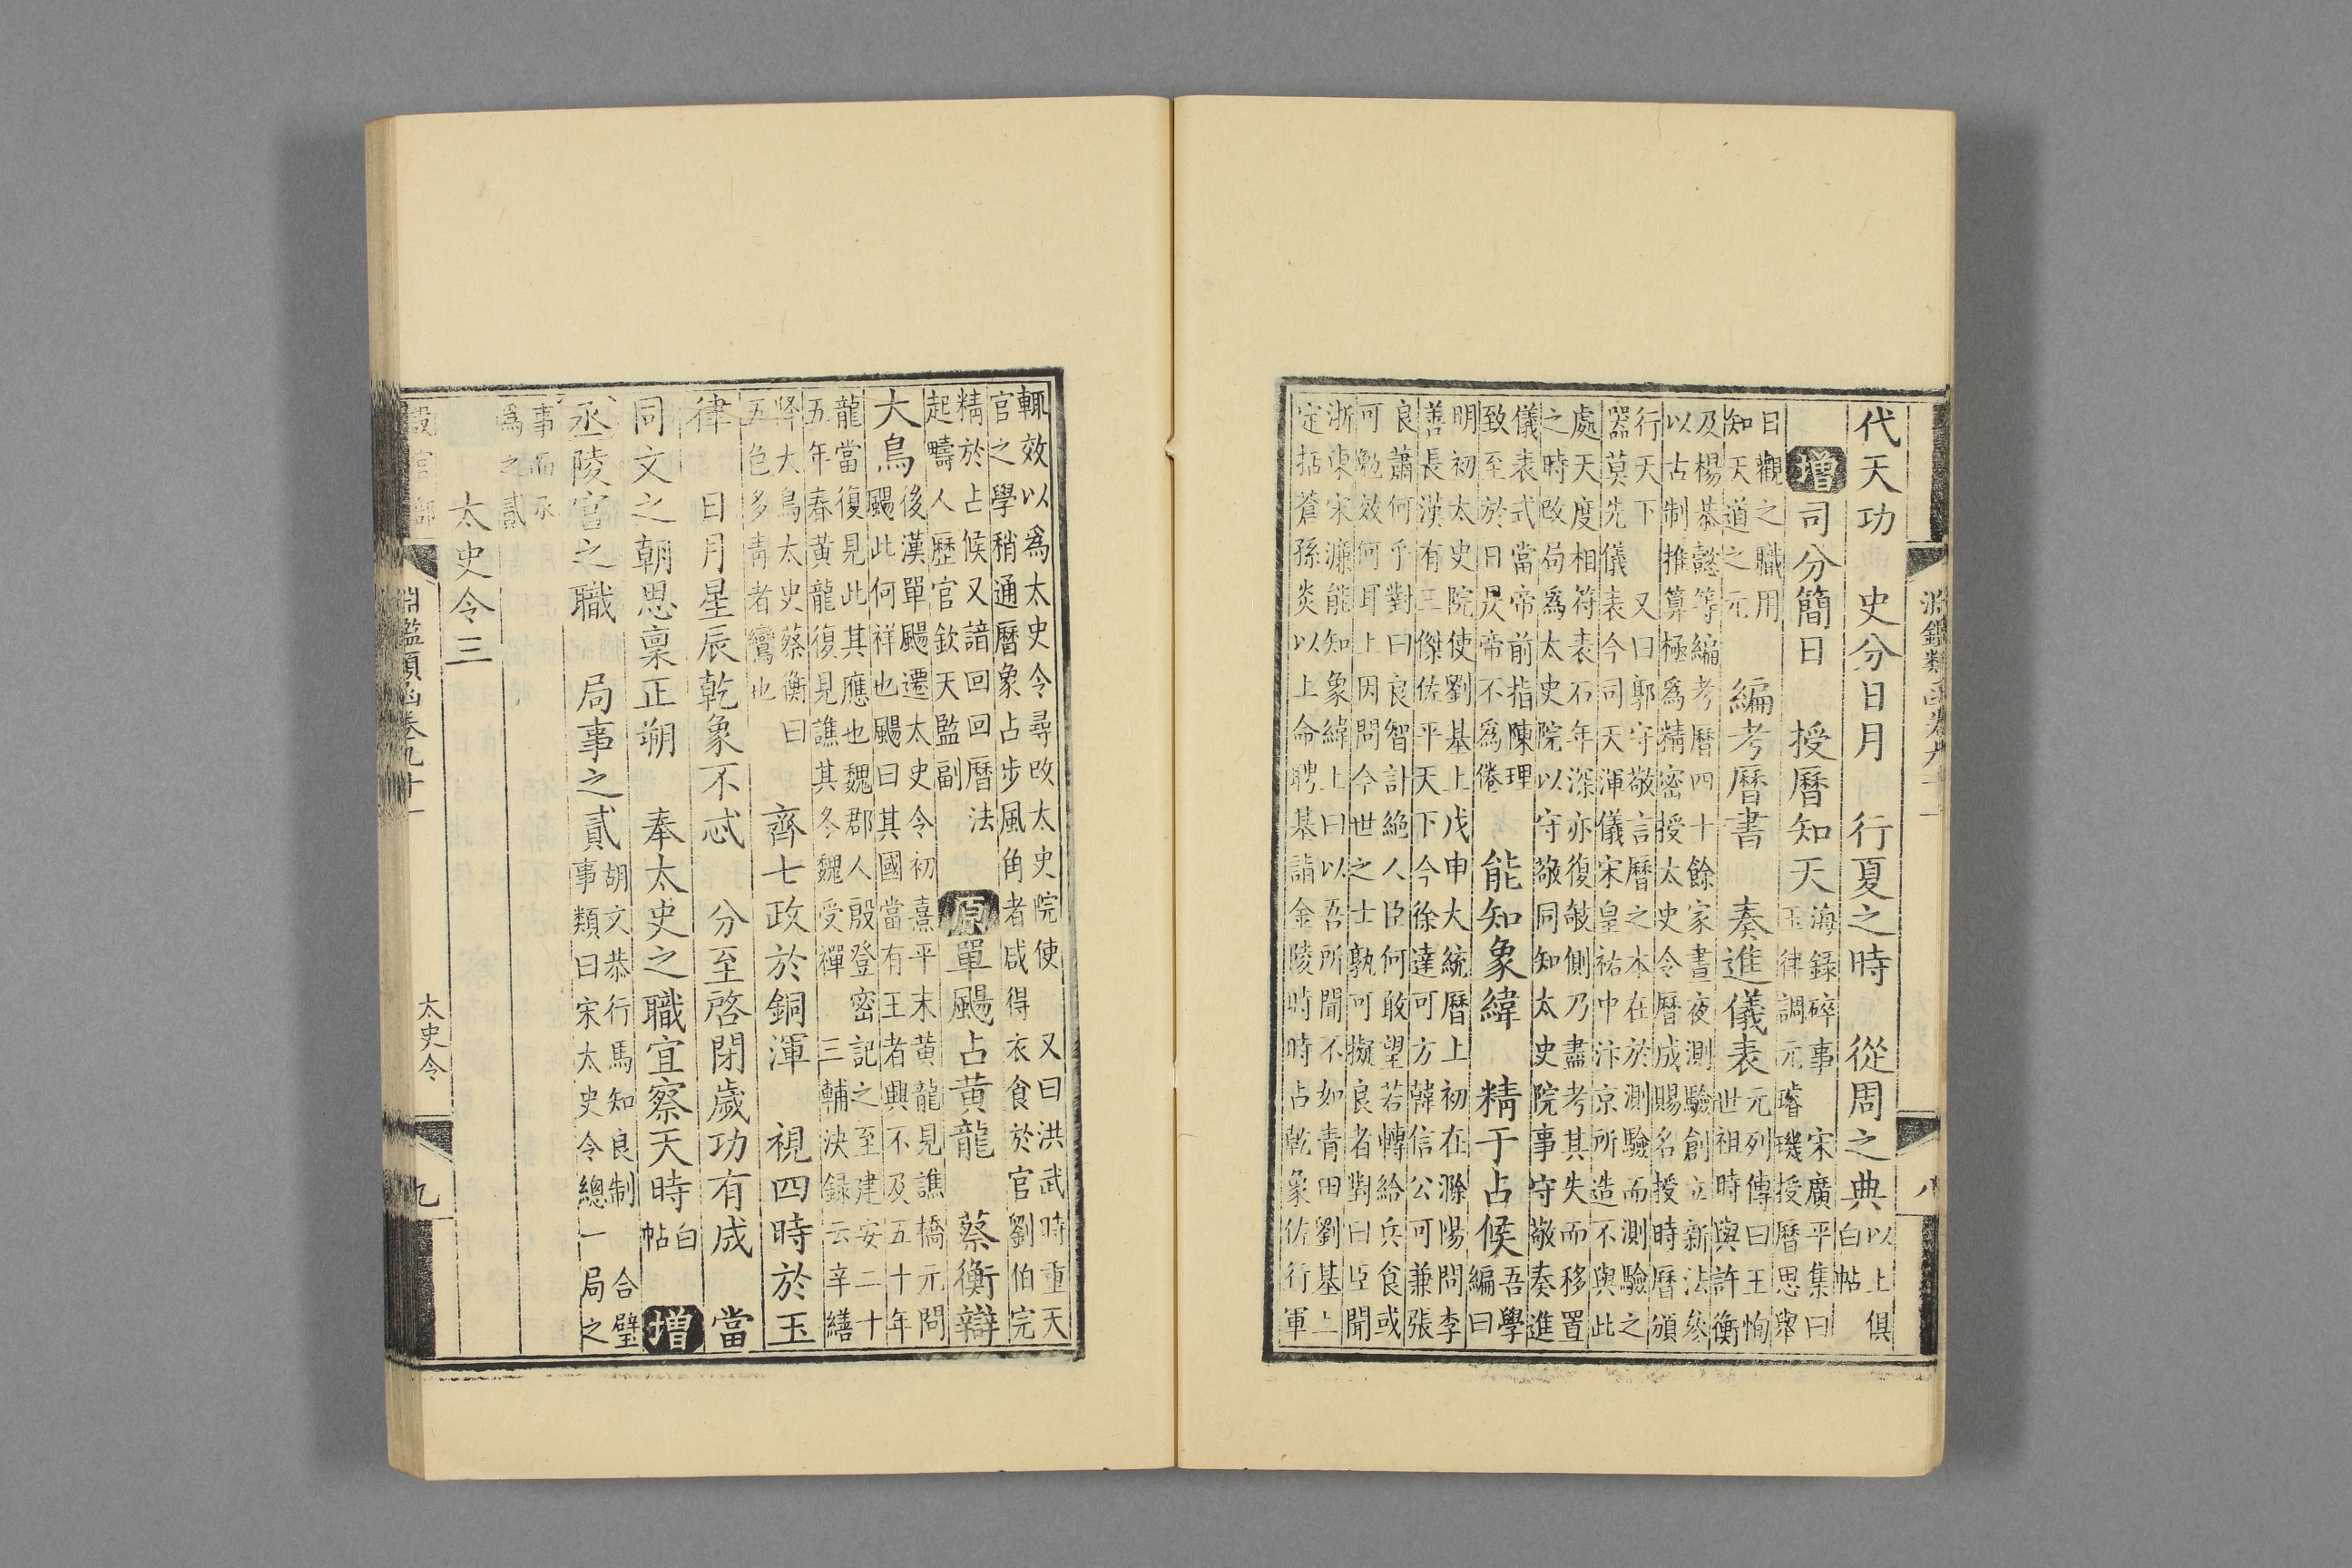 淵鑑類函卷九十一
八
代天功　史分日月　行夏之時　從周之典
以上俱
白帖
增司分簡日　授曆知天
海錄碎事　宋廣平集曰
玉律調元　璿璣授曆思舉
日觀之職用
知天道之元
編考曆書　奏進儀表
元列傳曰王恂
世祖時與許衡
及楊恭懿等編考曆四十餘家晝夜測驗創立新法參
以古制推算極為精密授太史令曆成賜名授時曆頒
行天下　又曰郭守敬言曆之本在於測驗而測驗之
器莫先儀表今司天渾儀宋皇祐中汴京所造不與此
處天度相符表石年深亦復攲側乃盡考其失而移置
之時改局為太史院以守敬同知太史院事守敬奏進
儀表式當帝前指陳理
致至於日昃帝不為倦
能知象緯　精于占候
吾學
編曰
明初太史院使劉基上戊申大統曆上初在滁陽問李
善長漢有三傑佐平天下今徐達可方韓信公可兼張
良蕭何乎對曰良智計絕人臣何敢望若轉給兵食或
可勉效何耳上因問今世之士孰可擬良者對曰臣聞
浙東宋濂能知象緯上曰以吾所聞不如青田劉基上
定括蒼孫炎以上命聘基詣金陵時時占乾象佐行軍
輒效以為太史令尋改太史院使　又曰洪武時重天
官之學稍通曆象占步風角者咸得衣食於官劉伯完
精於占候又諳回回曆法
起疇人歷官欽天監副
原單颺占黃龍　蔡衡辯
大鳥
後漢單颺遷太史令初熹平末黃龍見譙橋元問
颺此何祥也颺曰其國當有王者興不及五十年
龍當復見此其應也魏郡人殷登密記之至建安二十
五年春黃龍復見譙其冬魏受禪　三輔決錄云辛繕
大鳥太史蔡衡曰
五色多青者鸞也
齊七政於銅渾　視四時於玉
律　日月星辰乾象不忒　分至啓閉歲功有成　當
同文之朝思稟正朔　奉太史之職宜察天時
白
帖
增
丞陵官之職　局事之貳
胡文恭行馬知良制　合璧
事類曰宋太史令總一局之
事而丞
為之貳
太史令三
設官部
淵鑑類函卷九十一
太史令
九